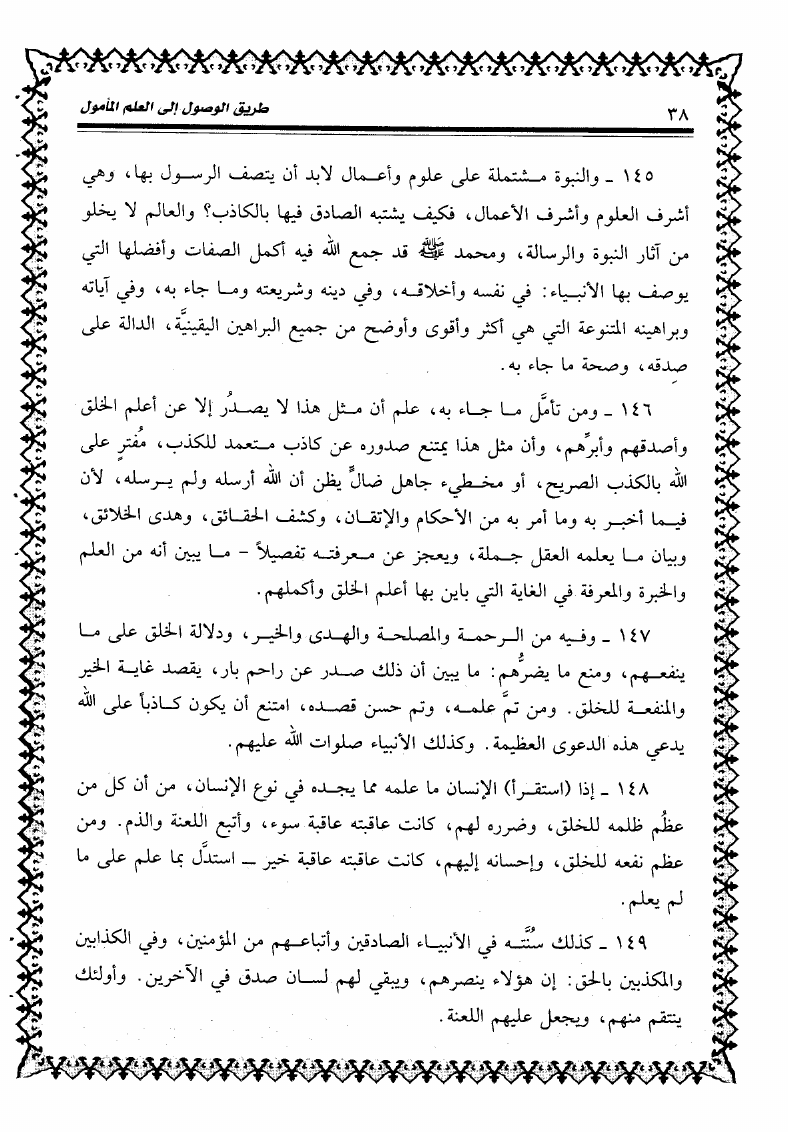 ٣٨
طريق الوصول إلى العلم المأمول
١٤٥ ـ والنبوة مشتملة على علوم وأعمال لابد أن يتصف الرسول بها، وهي
أشرف العلوم وأشرف الأعمال، فكيف يشتبه الصادق فيها بالكاذب؟ والعالم لا يخلو
من آثار النبوة والرسالة، ومحمد ﷺ قد جمع الله فيه أكمل الصفات وأفضلها التي
يوصف بها الأنبياء: في نفسه وأخلاقه، وفي دينه وشريعته وما جاء به، وفي آياته
وبراهينه المتنوعة التي هي أكثر وأقوى وأوضح من جميع البراهين اليقينيَّة، الدالة على
صِدقه، وصحة ما جاء به.
١٤٦ ـ ومن تأمَّل ما جاء به، علم أن مثل هذا لا يصدُر إلا عن أعلم الخلق
وأصدقهم وأبرِّهم، وأن مثل هذا يمتنع صدوره عن كاذب متعمد للكذب، مُفترٍ على
الله بالكذب الصريح، أو مخطيء جاهل ضالٍّ يظن أن الله أرسله ولم يرسله، لأن
فيما أخبر به وما أمر به من الأحكام والإتقان، وكشف الحقائق، وهدى الخلائق،
وبيان ما يعلمه العقل جملة، ويعجز عن معرفته تفصيلاً - ما يبين أنه من العلم
والخبرة والمعرفة في الغاية التي باين بها أعلم الخلق وأكملهم.
١٤٧ ـ وفيه من الرحمة والمصلحة والهدى والخير، ودلالة الخلق على ما
ينفعهم، ومنع ما يضرُّهم: ما يبين أن ذلك صدر عن راحم بار، يقصد غاية الخير
والمنفعة للخلق. ومن تمَّ علمه، وتم حسن قصده، امتنع أن يكون كاذباً على الله
يدعي هذه الدعوى العظيمة. وكذلك الأنبياء صلوات الله عليهم.
١٤٨ ـ إذا (استقرأ) الإنسان ما علمه مما يجده في نوع الإنسان، من أن كل من
عظُم ظلمه للخلق، وضرره لهم، كانت عاقبته عاقبة سوء، وأتبع اللعنة والذم. ومن
عظم نفعه للخلق، وإحسانه إليهم، كانت عاقبته عاقبة خير ـ استدلَّ بما علم على ما
لم يعلم.
١٤٩ ـ كذلك سنَّته في الأنبياء الصادقين وأتباعهم من المؤمنين، وفي الكذابين
والمكذبين بالحق: إن هؤلاء ينصرهم، ويبقي لهم لسان صدق في الآخرين. وأولئك
ينتقم منهم، ويجعل عليهم اللعنة.